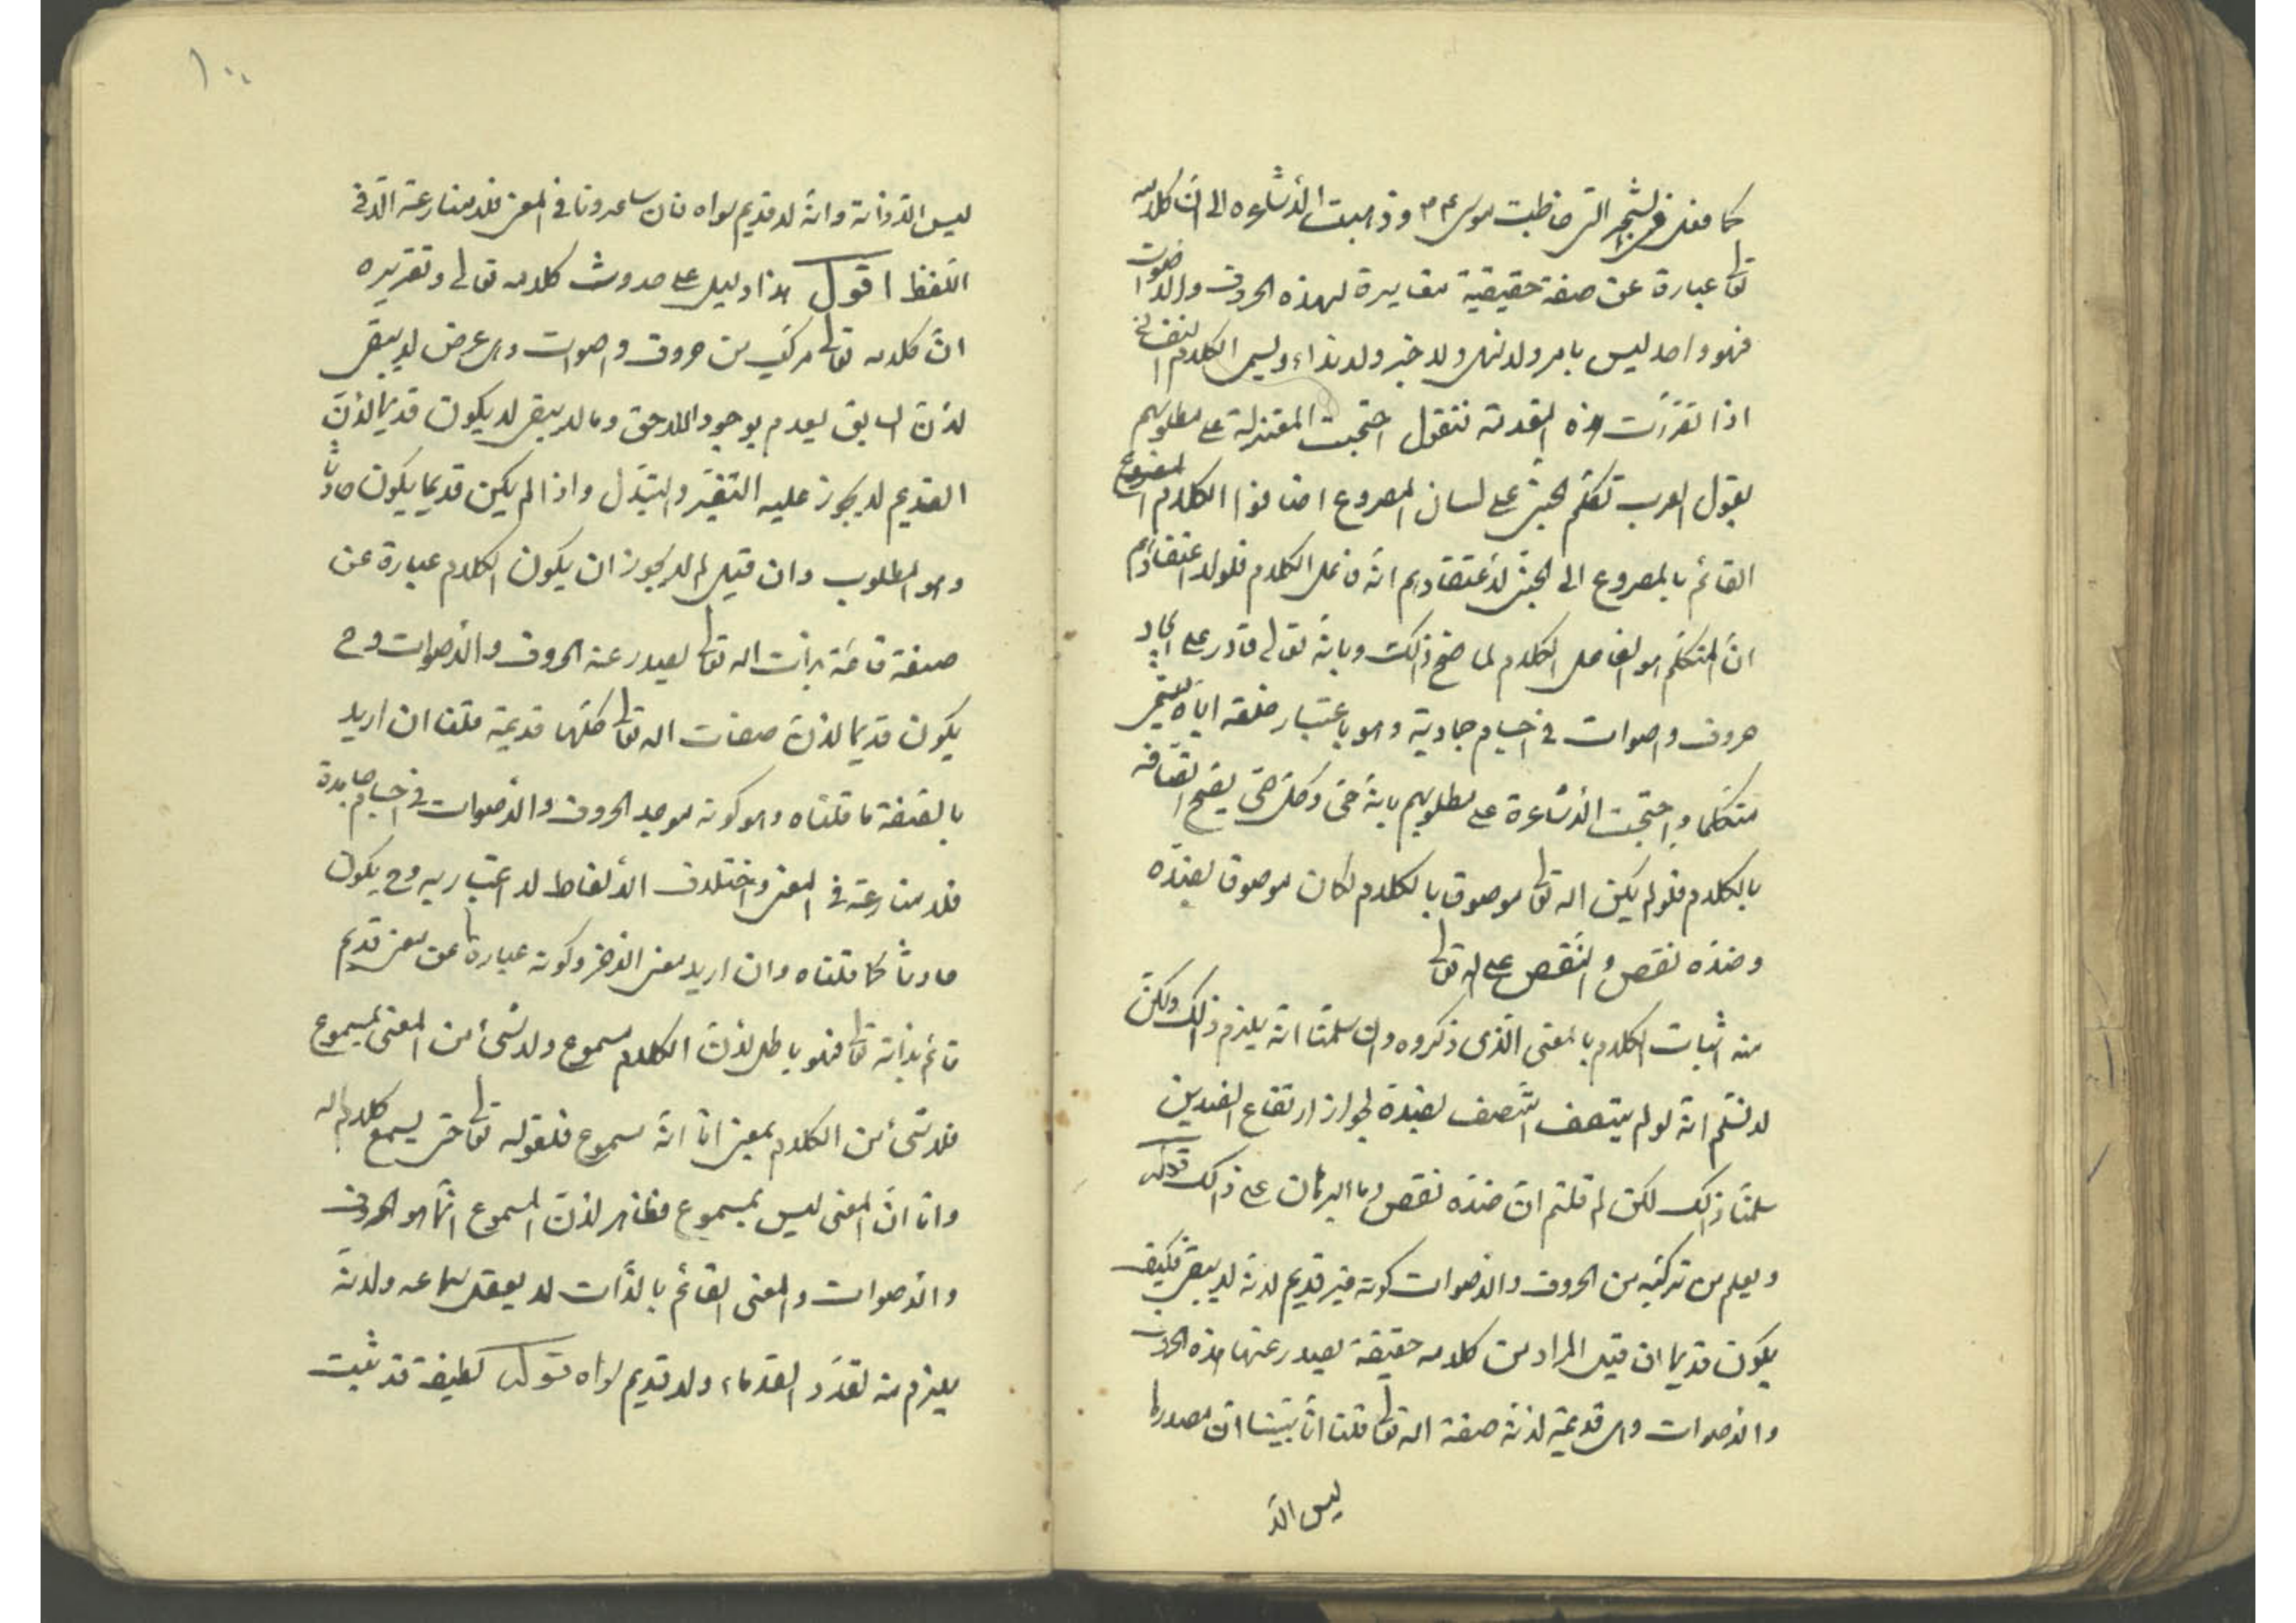 كما فعل فى الشجر التى خاطبت موسى ع م و ذهبت الأشاعره الى ان كلامه
تعا عبارة عن صفة حقيقية مغايرة لهذه الحروف والاصوات
فهو واحد ليس بامر ولا نهى ولا خبر ولا نداء ويسمى الكلام النفسانى
اذا تقررت هذه المقدمة فنقول احتجت المعتزلة على مطلوبهم
بقول العرب تكلم الجنى على لسان المصروع اضافوا الكلام المسموع
القائم بالمصروع الى الجنى لأعتقادهم انه فاعل الكلام فلولا اعتقادهم
ان المتكلم هو الفاعل الكلام لما صح ذلك وبانه تعالى قادر على ايجاد
حروف واصوات فى اجسام جمادية وهو باعتبار خلقه اياه يسمى
متكلما واحتجت الأشاعرة على مطلوبهم بانه حى وكل حى يصح اتصافه
بالكلام فلو لم يكن الله تعا موصوفا بالكلام لكان موصوفا بضده
وضده نقص والنقص على الله تعا
منه اثبات الكلام بالمعنى الذى ذكروه وان سلمنا انه يلزم ذلك ولكن
لا نسلم انه لو لم يتصف اتصف بضده لجواز ارتفاع الضدين
سلمنا ذلك لكن لم قلتم ان ضده نقص وما البرهان على ذلك قوله
ويعلم من تركبه من الحروف والاصوات كونه غير قديم لانه لا يبقى فكيف
يكون قديما ان قيل المراد من كلامه حقيقة يصدر عنها هذه الحروف
والاصوات وهى قديمة لانه صفة الله تعا قلنا انا بينا ان مصدرها
ليس الا
ليس الا ذاته وانه لا قديم سواه فان ساعدونا فى المعنى فلا منازعة الا فى
اللفظ اقول هذا دليل على حدوث كلامه تعالى وتقريره
ان كلامه تعا مركب من حروف واصوات وهى عرض لا يبقى
لان السابق يعدم بوجود اللاحق وما لا يبقى لا يكون قديما لأن
القديم لا يجوز عليه التغير والتبدل واذا لم يكن قديما يكون حادثا
وهو المطلوب وان قيل لم لا يجوز ان يكون الكلام عبارة عن
صفة قائمة بذات الله تعا يصدر عنه الحروف والأصوات وح
يكون قديما لان صفات الله تعا كلها قديمة قلنا ان اريد
بالصفة ما قلناه وهو كونه موجد الحروف والأصوات فى اجسام جامدة
فلا منازعة فى المعنى واختلاف الألفاظ لا اعتبار به وح يكون
حادثا كما قلناه وان اريد معنى اخر وكونه عبارة عن معنى قديم
قائم بذاته تعا فهو باطل لان الكلام مسموع ولا شىء من المعنى بمسموع
فلا شىء من الكلام بمعنى اما انه مسموع فلقوله تعا حتى يسمع كلام الله
واما ان المعنى ليس بمسموع فظاهر لان المسموع انما هو الحروف
والأصوات والمعنى القائم بالذات لا يعقل سماعه ولانه
يلزم منه تعدد القدماء ولا قديم سواه قوله لطيفة قد ثبت
١٠٠